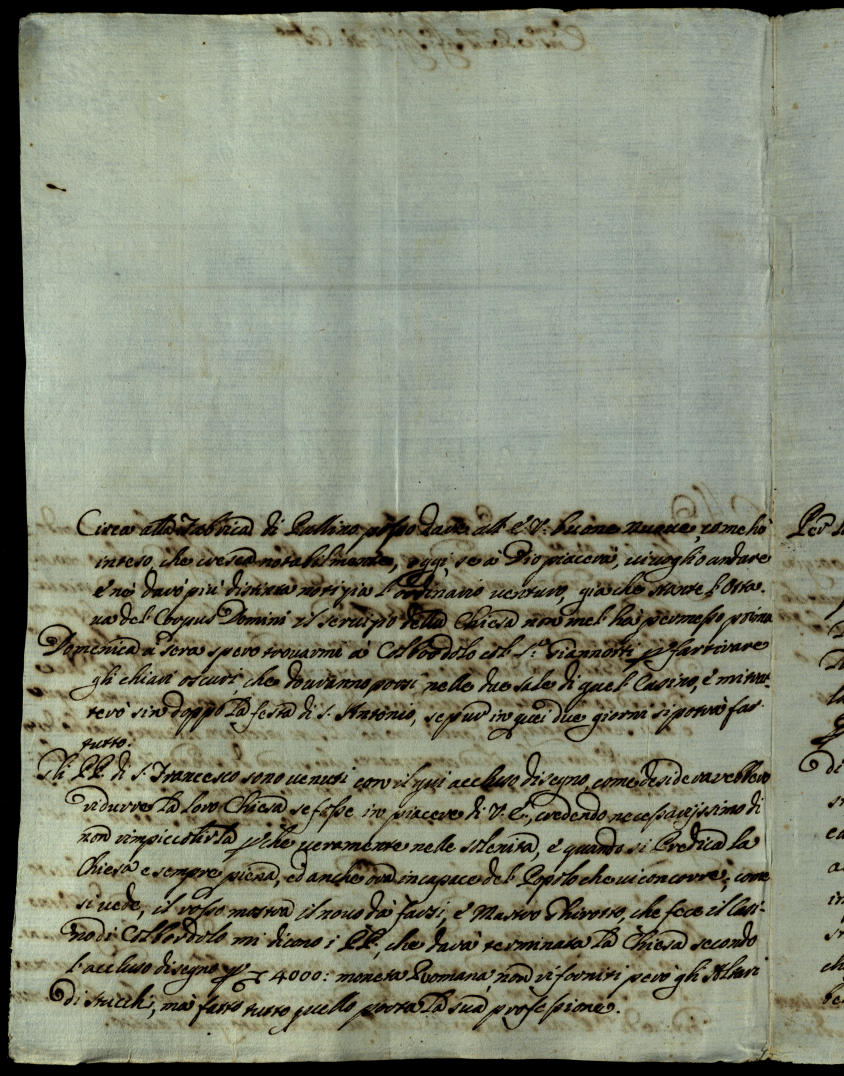 Circa alla Fabrica di Pallino posso dare all' E. V: buone nuove, come hò
inteso, che cresca notabilmente, oggi, se à Dio piacerà, vi voglio andare
e ne darò più distinta notizia l'ordinario venturo, già che stante l'Otta-
va del Corpus Domini il servizio della Chiesa non mel'hà permesso prima
Domenica à sera spero trovarmi à Colbordolo col S.r Giannotti per far tirare
gli chiari oscuri, che dovranno porsi nelle due sale di quel Casino, e mi trat-
terò sin doppo la festa di S. Antonio, se pur in quei due giorni si potrà far
tutto.
Gli PP. di S. Francesco sono venuti con il qui accluso disegno, come desiderarebbero
ridurre la loro Chiesa se fosse in piacere di V. E., credendo necessarissimo di
non rimpicciolirla perche veramente nelle solenità, e quando si Predica la
Chiesa e sempre piena, ed anche ora incapace del Popolo che vi concorre; come
si vede, il rosso mostra il novo da farsi, e Mastro Ghirotto, che fece il Casi-
no di Colbordolo mi dicono i PP., che darà terminata la Chiesa secondo
l'accluso disegno per 4000: moneta Romana, non vi forniti però gli Altari
di stucchi, mà fatto tutto quello porta la sua professione.
Per